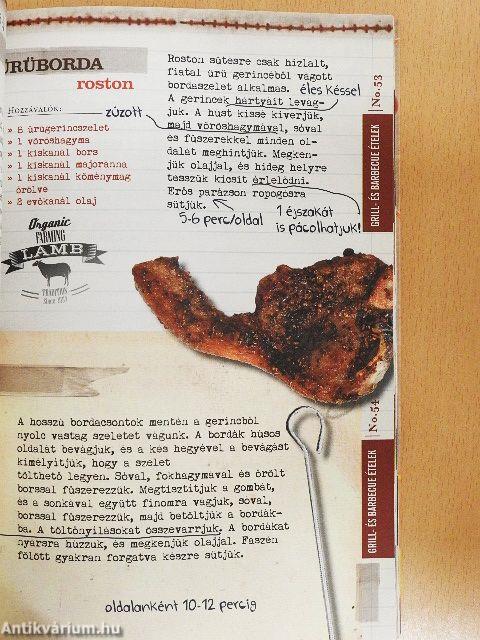 ÜRÜBORDA
roston
HOZZÁVALÓK:
» 8 ürügerincszelet
» 1 vöröshagyma
» 1 kiskanál bors
» 1 kiskanál majoranna
» 1 kiskanál köménymag
őrölve
» 2 evőkanál olaj
zúzott
Organic
FARMING
LAMB
TRADITIONS
Since 1953
Roston sütésre csak hizlalt,
fiatal ürü gerincéből vágott
bordaszelet alkalmas. éles késsel
A gerincek hártyáit levág-
juk. A húst kissé kiverjük,
majd vöröshagymával, sóval
és fűszerekkel minden ol-
dalát meghintjük. Megken-
jük olajjal, és hideg helyre
tesszük kicsit érlelődni.
Erős parázson ropogósra
sütjük.
5-6 perc/oldal
1 éjszakát
is pácolhatjuk!
No.53
GRILL- ÉS BARBECUE ÉTELEK
No.54
GRILL- ÉS BARBECUE ÉTELEK
A hosszú bordacsontok mentén a gerincből
nyolc vastag szeletet vágunk. A bordák húsos
oldalát bevágjuk, és a kés hegyével a bevágást
kimélyítjük, hogy a szelet
tölthető legyen. Sóval, fokhagymával és őrölt
borssal fűszerezzük. Megtisztítjuk a gombát,
és a sonkával együtt finomra vágjuk, sóval,
borssal fűszerezzük, majd betöltjük a bordák-
ba. A töltőnyílásokat összevarrjuk. A bordákat
nyársra húzzuk, és megkenjük olajjal. Faszén
fölött gyakran forgatva készre sütjük.
oldalanként 10-12 percig
Antikvárium.hu